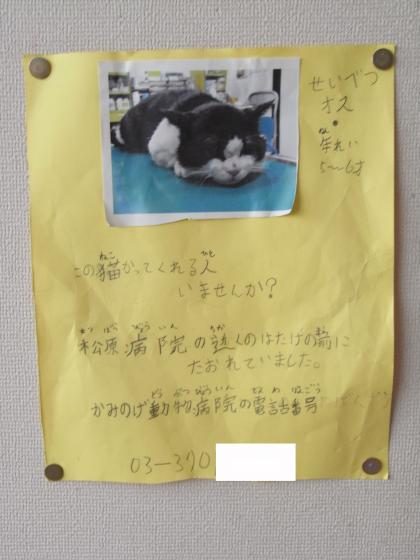 せいべつ
オス
年れい
5〜6才
この猫かってくれる人
いませんか?
松原病院の近くのはたけの前に
たおれていました。
かみのげ動物病院の電話番号
03-370